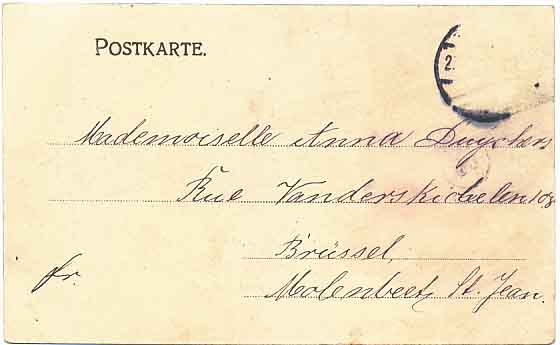 POSTKARTE.
2
Mademoiselle Anna Duychers
Rue Vanderskichelen 108
Brüssel,
fr. Molenbeek St. Jean.